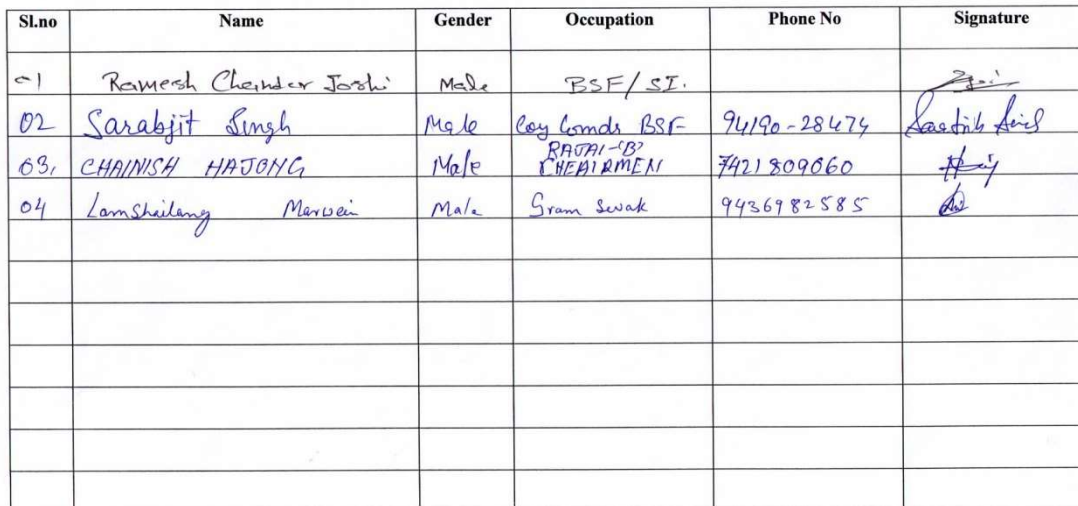 Sl.no Name Gender Occupation Phone No Signature
01 Ramesh Chander Joshi Male BSF/SI.
02 Sarabjit Singh Male Coy Comdr BSF 94190-28474
RAJAI-'B'
03, CHAINISH HAJONG Male CHEAIRMEN 7421809060
04 Lamshailang Marwein Male Gram Sevak 9436982585